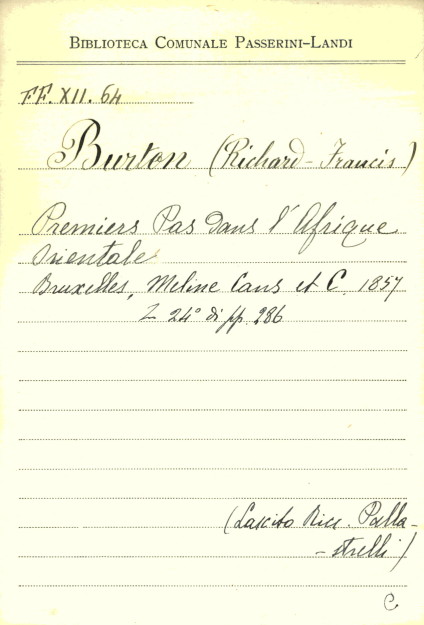 BIBLIOTECA COMUNALE PASSERINI-LANDI
FF. XII. 64
Burton (Richard-Francis)
Premiers Pas dans l'Afrique
Orientale
Bruxelles, Meline Cans et C. 1857
24° di pp. 286
(Lascito Ricc. Palla-
-strelli)
C